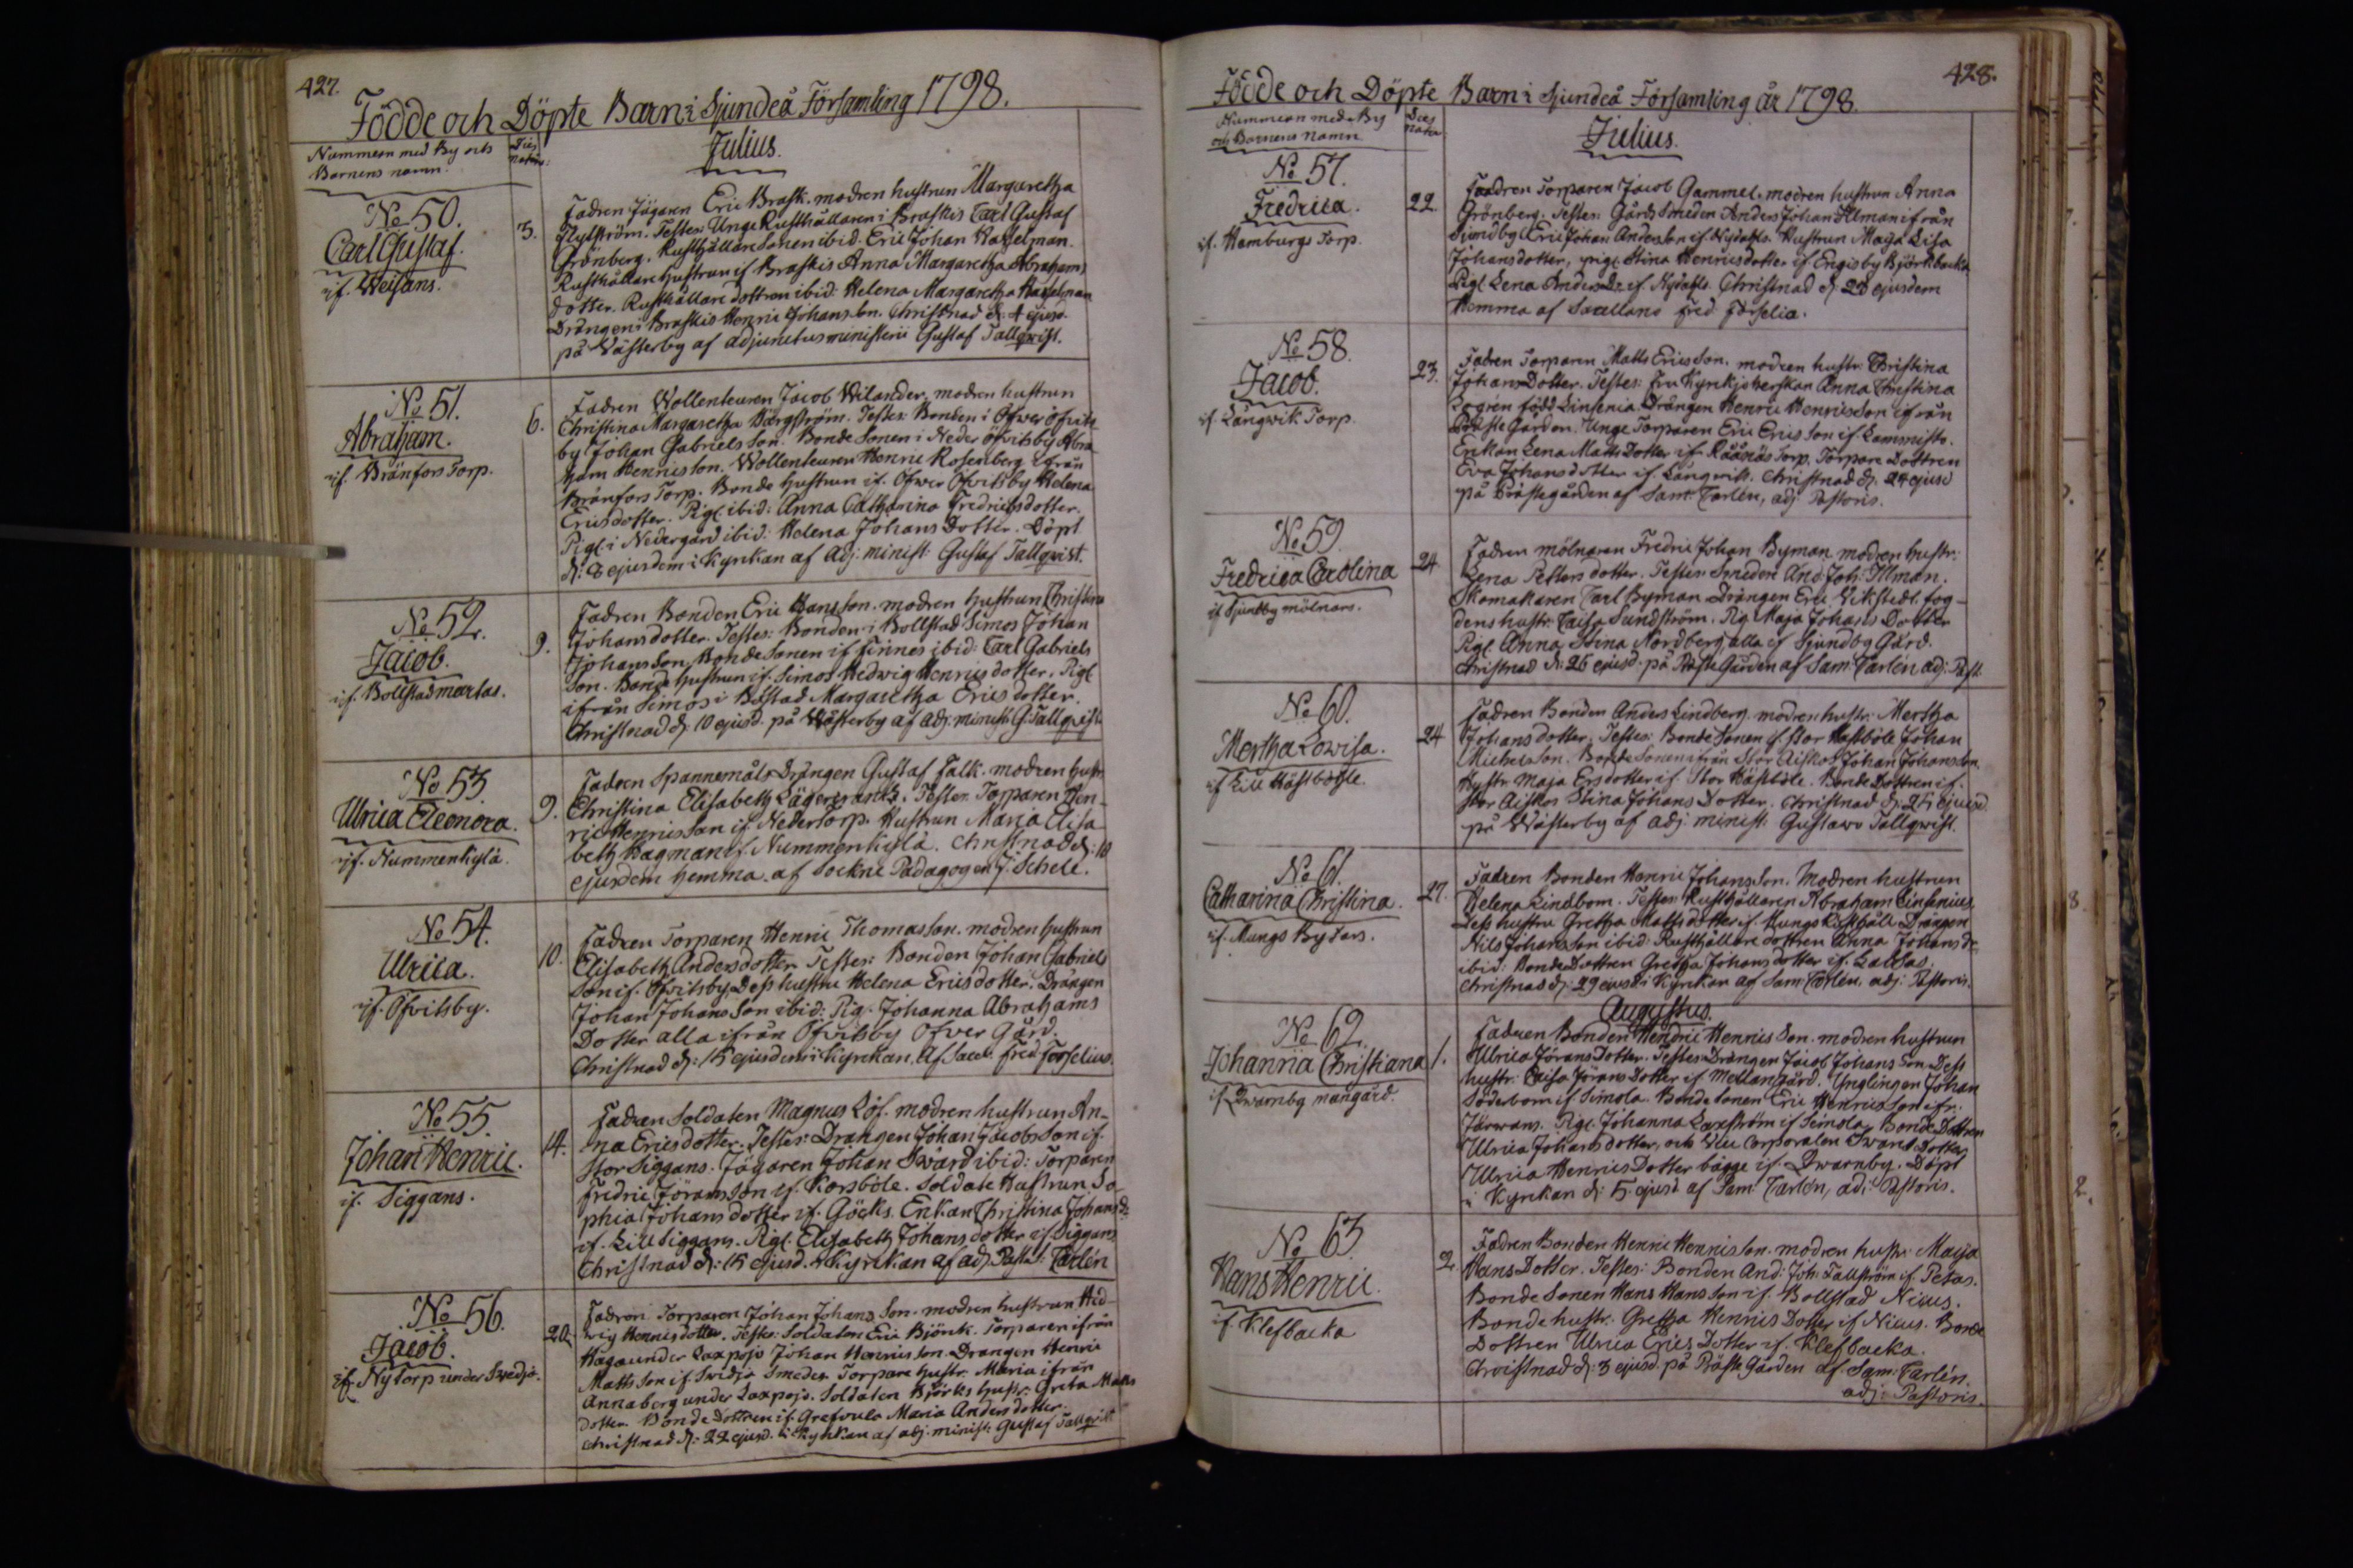 427.
Födde och Döpte Barn i Sjundeå Församling 1798.
Nummern med By och
Barnens namn.
Dies
natus:
Julius.
No 50.
Carl Gustaf.
if. Weijans.
3.
Fadren Jägaren Eric Brask. modren hustrun Margaretha
Flytström. Testes: Unge Rusthållaren i Braskis Carl Gustaf
Grönberg. Rusthållare Sonen ibid. Eric Johan Haxelman.
Rusthållare hustrun if Braskis Anna Margaretha Abrahams
dotter. Rusthållare dottren ibid: Helena Margaretha Haxelman
Drängen i Braskis Henric Johansson. Christnad d: 4 ejusd.
på Wästerby af adjunctus ministerii Gustaf Tallqwist.
No 51.
Abraham.
if. Bränfors Torp.
6.
Fadren Wollenteuren Jacob Wilander, modren hustrun
Christina Margaretha Bärgström. Testes: Bonden i Öfwer Öfvits
by Johan Gabriels Son. Bonde Sonen i Neder öfvitsby Abra
ham Henricsson. Wollenteuren Henric Rosenberg ifrån
Bränfors Torp. Bonde hustrun if. Öfwer Öfvitsby Helena
Ericsdotter. Pigl. ibid: Anna Catharina Fredricsdotter.
Pigl. i Nedergård ibid: Helena Johans Dotter. Döpt
d: 8 ejusdem i Kyrkan af Adj: minist: Gustaf Tallqwist.
No 52.
Jacob.
if. Bollstad martas.
9.
Fadren Bonden Eric Hansson. modren hustrun Christina
Johansdotter. Testes: Bonden i Bollstad Simos Johan
Johansson, Bonde Sonen if Finnes ibid: Carl Gabriels
Son. Bonde hustrun if. Simos Hedwig Henricsdotter. Pigl
ifrån Simos i Bolstad Margaretha Erics dotter.
Christnad d: 10 ejusd. på Wästerby af adj: minist: G: Tallqwist
No 53.
Ulrica Eleonora.
if. Nummenkylä.
9.
Fadren Spannemåls Drängen Gustaf Falk. modren hustr.
Christina Elisabeth Lägercrantz. Testes. Torparen Hen-
ric Henricsson if Nedertorp. Hustrun Maria Elisa
beth Hagman if. Nummenkylä. Christnad d: 10
ejusdem hemma af Sockne Pädagogen J: Schele.
No 54.
Ulrica.
if. Öfvitsby.
10.
Fadren Torparen Henric Thomasson. modren hustrun
Elisabeth Andersdotter. Testes: Bonden Johan Gabriels
Son if. Öfvitsby, Dess hustru Helena Ericsdotter. Drängen
Johan Johans Son ibid: Pig. Johanna Abrahams
Dotter alla ifrån Öfvitsby Öfver Gård.
Christnad d: 15 ejusdem i Kyrkan. Af Sacel. Fred Forselius.
No 55.
Johan Henric.
if. Siggans.
14.
Fadren Soldaten Magnus Löf. modren hustrun An-
na Ericsdotter. Testes: Drängen Johan Jacobsson if.
Stor Siggans. Jägaren Johan Swärd ibid: Torparen
Fredric Jöransson if. Korsböle. Soldate Hustrun So-
phia Johansdotter if. Göcks. Enkan Christina Johans Dr
if. Lill Siggans. Pigl. Elisabeth Johansdotter if Siggans
Christnad d: 15 ejusd. i Kyrkan af adj. Past: Carlén
No 56.
Jacob.
if. Nytorp under Swidja.
20.
Fadren Torparen Johan Johans Son. modren hustrun Hed-
wig Henricsdotter. Testes: Soldaten Eric Björck. Torparen ifrån
Haga under Laxpojo Johan Henricsson. Drängen Henric
Matts Son if Swidja Smedes. Torpare hustr: Maria ifrån
Annaberg under Laxpojo. Soldaten Björks hustr: Greta Matts
dotter. Bonde Dottren if. Grefvulo Maria Andersdotter.
Christnad d: 22 ejusd. i Kyrkan af adj. minist: Gustaf Tallqvist
428.
Födde och Döpte Barn i Sjundeå Församling år 1798.
Nummern med By
och Barnens namn.
Dies
natus
Julius.
No 57.
Fredrica.
if. Hamburgs Torp.
22.
Fadren Torparen Jacob Gammel. modren hustrun Anna
Grönberg. Testes: Gårds Smeden Anders Johan Illman ifrån
Sjundby. Eric Johan Andersson if. Nydahls. Hustrun Maja Lisa
Johansdotter, pigl. Stina Henricsdotter if Engisby Björkbacka
Pigl. Lena Anders Dr. if. Nydahls. Christnad d: 23 ejusdem
Hemma af Sacellano Fred. Forselio.
No 58.
Jacob.
if. Långwik Torp.
23.
Fadren Torparen Matts Ericsson. modren hustr: Christina
Johans Dotter. Testes: Fru Kyrkjoherskan Anna Christina
Logrén född Linsenia. Drängen Henric Henricsson ifrån
Präste Gården. Unge Torparen Eric Ericsson if. Lammisto.
Enkan Lena Matts Dotter if Råånäs Torp. Torpare Dottren
Eva Johansdotter if. Långwik. Christnad d: 24 ejusd
på Prästegården af Sam: Carlén, adj Pastoris.
No 59.
Fredrica Carolina
if Sjundby mölnars.
24
Fadren mölnaren Fredric Johan Byman modren hustr:
Lena Petters dotter. Testes: Smeden And: Joh: Illman.
Skomakaren Carl Byman Drängen Eric Wikstedt. fog-
dens hustr: Caisa Sundström. Pig. Maja Johans Dotter
Pigl Anna Stina Nordberg alla if Sjundby Gård.
Christnad d: 26 ejusd. på Präste Gården af Sam: Carlén adj: Past.
No 60.
Mertha Lowisa.
if Lill Hästböhle.
24
Fadren Bonden Anders Lindberg. modren hustr: Mertha
Johansdotter. Testes: Bonde Sonen if. Stor Hästböle Johan
Michelsson. Bonde Sonen ifrån Stor Aiskos Johan Johansson.
Hustr Maja Ersdotter if. Stor Hästböle. Bonde Dottren if.
Stor Aiskos Stina Johans Dotter. Christnad d. 25 ejusd
på Wästerby af adj: minist: Gustawo Tallqwist.
No 61.
Catharina Christina.
if. Mungs Bytars.
27.
Fadren Bonden Henric Johansson. Modren hustrun
Helena Lindbom. Testes: Rusthållaren Abraham Linsenius,
Dess hustru Gretha Mattsdotter if. Mungs Rusthåll. Drängen
Nils Johansson ibid: Rusthållare dottren Anna Johans Dr
ibid: Bonde Dottren Gretha Johansdotter if. Lassas.
Christnad d: 29 ejusd i Kyrkan af Sam: Carlén, adj: Pastoris.
Augustus.
No 62.
Johanna Christiana
if. Qwarnby mangård.
1.
Fadren Bonden Hendric Henrics Son. modren hustrun
Ulrica Jörans Dotter. Testes: Drängen Jacob Johansson. Dess
hustr: Caisa Jörans Dotter if Mellangård. Ynglingen Johan
Söderbom if Simola. Bonde Sonen Eric Henricsson ifr.
Järwans. Pigl. Johanna Laxström if Simola. Bonde Dottren
Ulrica Johansdotter, och Vice Corporalen Swans Dotter
Ulrica Henrics Dotter bägge if. Qwarnby. Döpt
i Kyrkan d: 5 ejusd af Sam: Carlén, adj: Pastoris.
No 63.
Hans Henric.
if Klefbacka
2.
Fadren Bonden Henric Henricsson. modren hustr: Maija
Hans Dotter. Testes: Bonden And: Joh: Tallström if. Petas.
Bonde Sonen Hans Hansson if. Bollstad Nicus.
Bonde hustr: Gretha Henrics Dotter if Nicus. Bonde
Dottren Ulrica Erics Dotter if. Klefbacka.
Christnad d: 3 ejusd. på Präste Gården af Sam: Carlén.
adj: Pastoris.